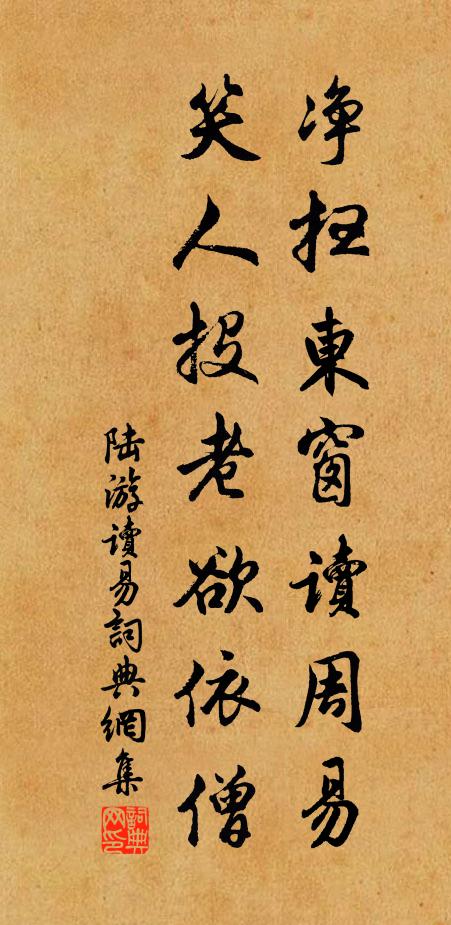 净扫東窗讀周易
笑人投老欲依僧
陆游讀易詞典網集
詞典网印